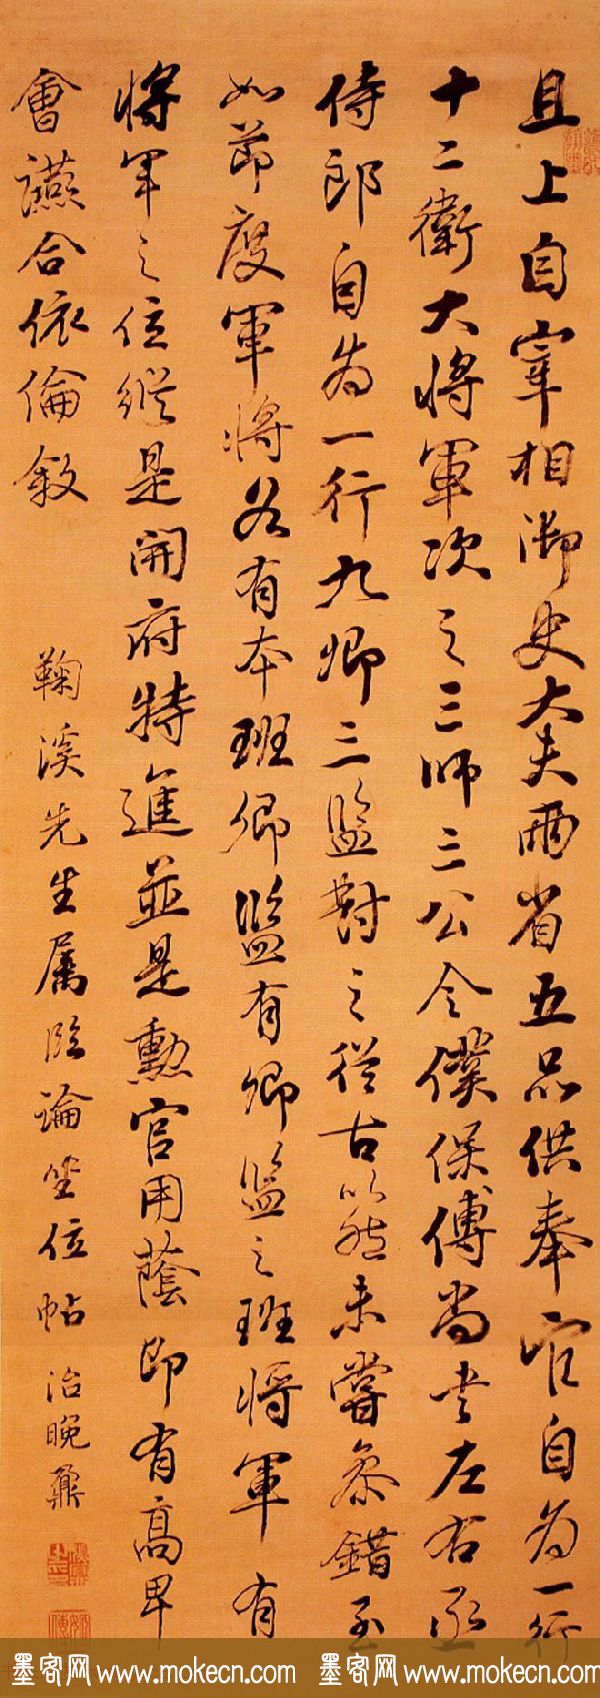 且上自宰相御史大夫兩省五品供奉官自為一行
十二衛大將軍次之三師三公令僕保傅尚書左右丞
侍郎自為一行九卿三監對之從古以然未嘗參錯至
如節度軍將各有本班卿監有卿監之班將軍有
將軍之位縱是開府特進並是勳官用蔭即有高卑
會讌合依倫敘
鞠溪先生屬臨論坐位帖 治晚鼐
墨客网 www.mokecn.com 墨客网 www.mokecn.com